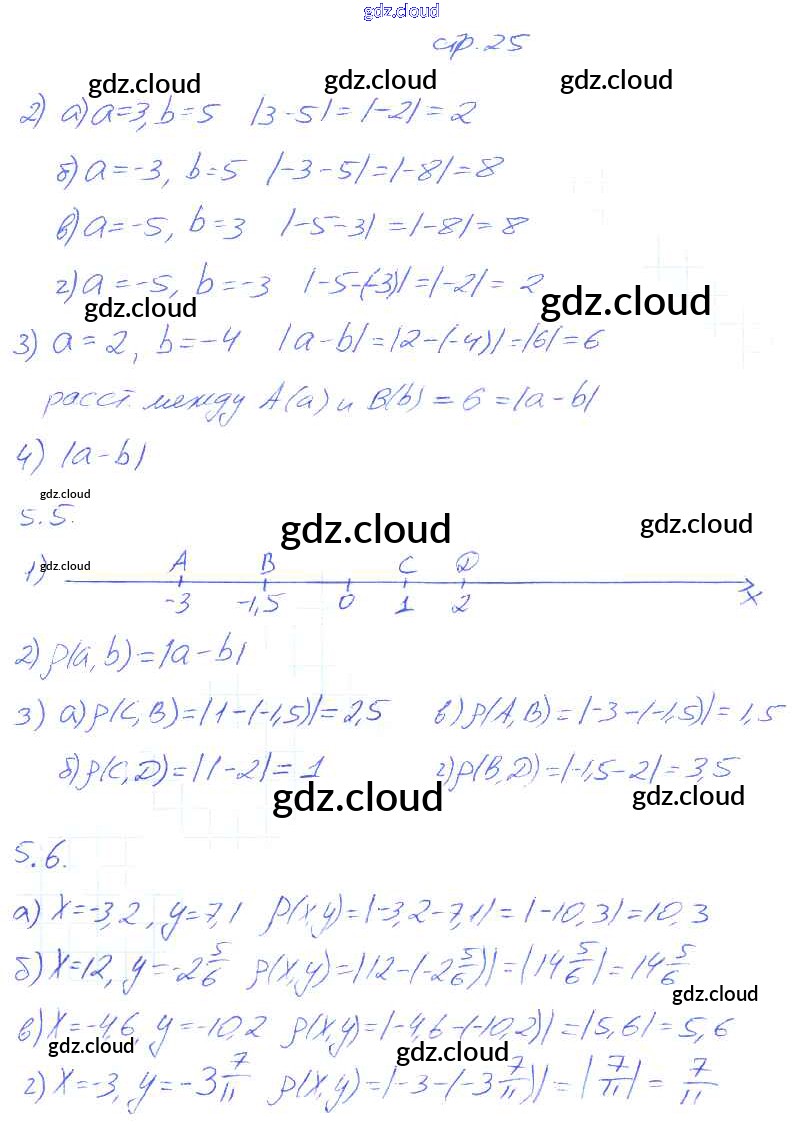 gdz.cloud
стр. 25
gdz.cloud gdz.cloud gdz.cloud
2) а) a=3, b=5 |3-5|=|-2|=2
б) a=-3, b=5 |-3-5|=|-8|=8
в) a=-5, b=3 |-5-3|=|-8|=8
г) a=-5, b=-3 |-5-(-3)|=|-2|=2
gdz.cloud gdz.cloud
3) a=2, b=-4 |a-b|=|2-(-4)|=|6|=6
расст. между A(a) и B(b) = 6 = |a-b|
4) |a-b|
gdz.cloud
5.5.
gdz.cloud gdz.cloud
1) gdz.cloud A B C D
-3 -1,5 0 1 2 x
2) ρ(a, b)=|a-b|
3) а) ρ(C, B)=|1-(-1,5)|=2,5 в) ρ(A, B)=|-3-(-1,5)|=1,5
б) ρ(C, D)=|1-2|=1 г) ρ(B, D)=|-1,5-2|=3,5
gdz.cloud gdz.cloud
5.6.
а) x=-3,2, y=7,1 ρ(x,y)=|-3,2-7,1|=|-10,3|=10,3
б) x=12, y=-2 5/6 ρ(x,y)=|12-(-2 5/6)|=|14 5/6|=14 5/6
gdz.cloud
в) x=-4,6, y=-10,2 ρ(x,y)=|-4,6-(-10,2)|=|5,6|=5,6
gdz.cloud gdz.cloud
г) x=-3, y=-3 7/11 ρ(x,y)=|-3-(-3 7/11)|=|7/11|=7/11